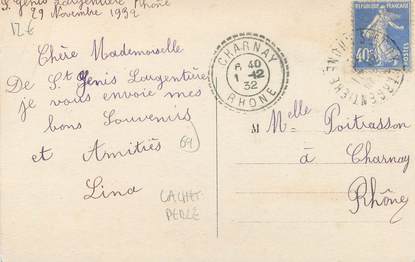 St Genis Largentière Rhône
29 Novembre 1932
12€
Chère Mademoiselle
De St Genis Largentière
je vous envoie mes
bons Souvenirs
et Amitiés
Lina
69
CACHET
PERLÉ
CHARNAY
6 40
1 -12
32
RHONE
REPUBLIQUE FRANÇAISE
40c
POSTES
ARGENTIERE
RHONE
Melle Poitrasson
à Charnay
Rhône